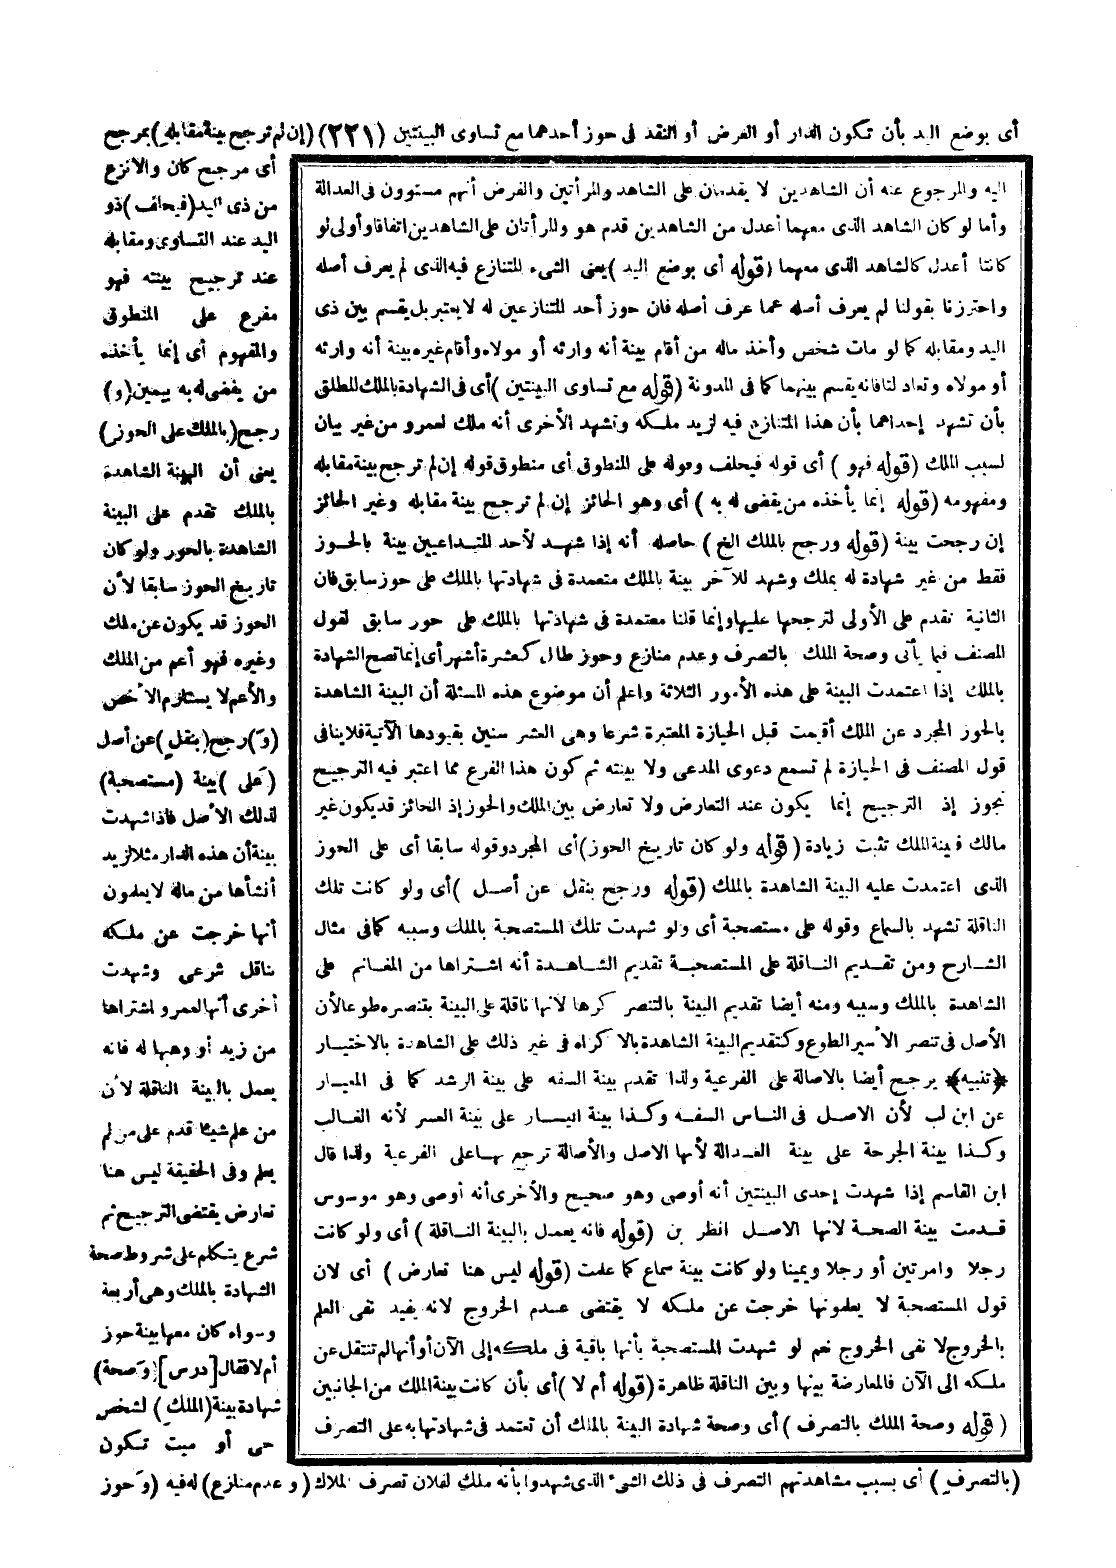 أى بوضع اليد بأن تكون الدار أو العرض أو النقد فى حوز أحدهما مع تساوى البينتين (٢٢١) (إن لم ترجح بينة مقابله) بمرجح
أى مرجح كان والا نزع
من ذى اليد (فيحلف) ذو
اليد عند التساوى ومقابله
عند ترجيح بينته فهو
مفرع على المنطوق
والمفهوم أى إنما يأخذه
من يقضى له به بيمين (و)
رجح (بالملك على الحوز)
يعنى أن البينة الشاهدة
بالملك تقدم على البينة
الشاهدة بالحوز ولو كان
تاريخ الحوز سابقا لأن
الحوز قد يكون عن ملك
وغيره فهو أعم من الملك
والأعم لا يستلزم الأخص
(و) رجح (بنقل) عن أصل
(على) بينة (مستصحبة)
لذلك الأصل فاذا شهدت
بينة أن هذه الدار مثلا لزيد
أنشأها من ماله لا يعلمون
أنها خرجت عن ملكه
بناقل شرعى وشهدت
أخرى أنها لعمرو اشتراها
من زيد أو وهبها له فانه
يعمل بالبينة الناقلة لأن
من علم شيئا قدم على من لم
يعلم وفى الحقيقة ليس هنا
تعارض يقتضى الترجيح ثم
شرع يتكلم على شروط صحة
الشهادة بالملك وهى أربعة
وسواء كان معها بينة حوز
أم لا فقال [درس] (وصحة)
شهادة بينة (الملك) لشخص
حى أو ميت تكون
(بالتصرف) أى بسبب مشاهدتهم التصرف فى ذلك الشىء الذى شهدوا بأنه ملك لفلان تصرف الملاك (و عدم منازع) له فيه (وحوز
اليه والمرجوع عنه أن الشاهدين لا يقدمان على الشاهد والمرأتين والفرض أنهم مستوون فى العدالة
وأما لو كان الشاهد الذى معهما أعدل من الشاهدين قدم هو والمرأتان على الشاهدين اتفاقا وأولى لو
كانتا أعدل كالشاهد الذى معهما (قوله أى بوضع اليد) يعنى الشىء المتنازع فيه الذى لم يعرف أصله
واحترزنا بقولنا لم يعرف أصله عما عرف أصله فان حوز أحد المتنازعين له لا يعتبر بل يقسم بين ذى
اليد ومقابله كما لو مات شخص وأخذ ماله من أقام بينة أنه وارثه أو مولاه وأقام غيره بينة أنه وارثه
أو مولاه وتعادلتا فانه يقسم بينهما كما فى المدونة (قوله مع تساوى البينتين) أى فى الشهادة بالملك المطلق
بأن تشهد إحداهما بأن هذا المتنازع فيه لزيد ملكه وتشهد الأخرى أنه ملك لعمرو من غير بيان
لسبب الملك (قوله فهو) أى قوله فيحلف وقوله على المنطوق أى منطوق قوله إن لم ترجح بينة مقابله
ومفهومه (قوله إنما يأخذه من يقضى له به) أى وهو الحائز إن لم ترجح بينة مقابله وغير الحائز
إن رجحت بينة (قوله ورجح بالملك الخ) حاصله أنه إذا شهد لأحد المتداعيين بينة بالحوز
فقط من غير شهادة له بملك وشهد للآخر بينة بالملك متعمدة فى شهادتها بالملك على حوز سابق فان
الثانية تقدم على الأولى لترجحها عليها وإنما قلنا معتمدة فى شهادتها بالملك على حوز سابق لقول
المصنف فيما يأتى وصحة الملك بالتصرف وعدم منازع وحوز طال كعشرة أشهر أى إنما تصح الشهادة
بالملك إذا اعتمدت البينة على هذه الأمور الثلاثة واعلم أن موضوع هذه المسئلة أن البينة الشاهدة
بالحوز المجرد عن الملك أقيمت قبل الحيازة المعتبرة شرعا وهى العشر سنين بقيودها الآتية فلا ينافى
قول المصنف فى الحيازة لم تسمع دعوى المدعى ولا بينته ثم كون هذا الفرع مما اعتبر فيه الترجيح
تجوز إذ الترجيح إنما يكون عند التعارض ولا تعارض بين الملك والحوز إذ الحائز قد يكون غير
مالك فبينة الملك تثبت زيادة (قوله ولو كان تاريخ الحوز) أى المجرد وقوله سابقا أى على الحوز
الذى اعتمدت عليه البينة الشاهدة بالملك (قوله ورجح بنقل عن أصل) أى ولو كانت تلك
الناقلة تشهد بالسماع وقوله على مستصحبة أى ولو شهدت تلك المستصحبة بالملك وسببه كما فى مثال
الشارح ومن تقديم الناقلة على المستصحبة تقديم الشاهدة أنه اشتراها من المغانم على
الشاهدة بالملك وسببه ومنه أيضا تقديم البينة بالتنصر كرها لأنها ناقلة على البينة بتنصره طوعا لأن
الأصل فى تنصر الأسير الطوع وكتقديم البينة الشاهدة بالاكراه فى غير ذلك على الشاهدة بالاختيار
﴿تنبيه﴾ يرجح أيضا بالاصالة على الفرعية ولذا تقدم بينة السفه على بينة الرشد كما فى المعيار
عن ابن لب لأن الاصل فى الناس السفه وكذا بينة اليسار على بينة العسر لأنه الغالب
وكذا بينة الجرحة على بينة العدالة لأنها الاصل والأصالة ترجح بها على الفرعية ولذا قال
ابن القاسم إذا شهدت إحدى البينتين أنه أوصى وهو صحيح والأخرى أنه أوصى وهو موسوس
قدمت بينة الصحة لانها الاصل انظر بن (قوله فانه يعمل بالبينة الناقلة) أى ولو كانت
رجلا وامرتين أو رجلا ويمينا ولو كانت بينة سماع كما علمت (قوله ليس هنا تعارض) أى لان
قول المستصحبة لا يعلمونها خرجت عن ملكه لا يقتضى عدم الخروج لانه يفيد نفى العلم
بالخروج لا نفى الخروج نعم لو شهدت المستصحبة بأنها باقية فى ملكه إلى الآن أو أنها لم تنتقل عن
ملكه الى الآن فالمعارضة بينها وبين الناقلة ظاهرة (قوله أم لا) أى بأن كانت بينة الملك من الجانبين
(قوله وصحة الملك بالتصرف) أى وصحة شهادة البينة بالملك أن تعتمد فى شهادتها به على التصرف